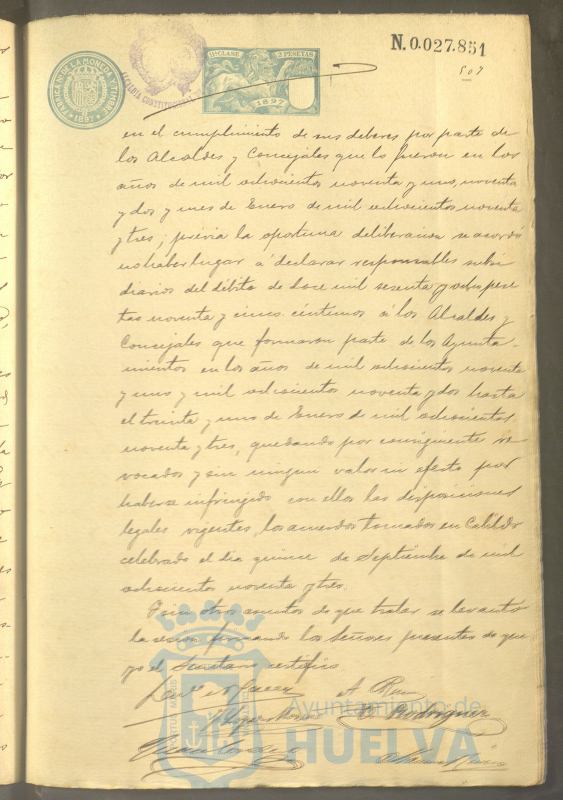 FABRICA NL. DE LA MONEDA Y TIMBRE
1897
ALCALDIA CONSTITUCIONAL
11ª CLASE 2 PESETAS
1897
N.0.027.851
507
en el cumplimiento de sus deberes por parte de
los Alcaldes y Concejales que lo fueron en los
años de mil ochocientos noventa y uno, noventa
y dos y mes de Enero de mil ochocientos noventa
y tres; previa la oportuna deliberacion se acordó
no haber lugar á declarar responsables subsi
diarios del débito de doce mil sesenta y ocho pese
tas noventa y cinco céntimos á los Alcaldes y
Concejales que formaron parte de los Ayunta-
mientos en los años de mil ochocientos noventa
y uno y mil ochocientos noventa y dos hasta
el treinta y uno de Enero de mil ochocientos
noventa y tres, quedando por consiguiente re
vocados y sin ningun valor ni efecto por
haberse infringido con ellos las disposiciones
legales vigentes, los acuerdos tomados en Cabildo
celebrado el dia quince de Septiembre de mil
ochocientos noventa y tres.
Y sin otros asuntos de que tratar se levantó
la sesion firmando los Señores presentes de que
yo el Secretario certifico.
Rodriguez
PORTUS MARIS
Ayuntamiento de
HUELVA